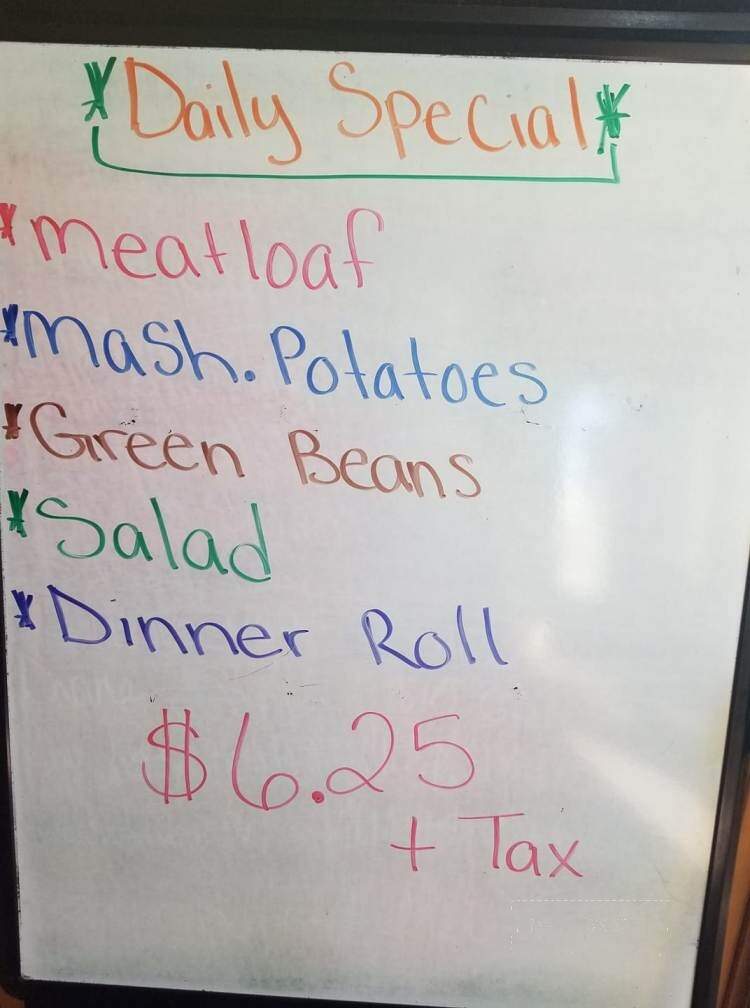 *Daily Special*
*meatloaf
*mash. Potatoes
*Green Beans
*Salad
*Dinner Roll
$6.25
+ Tax